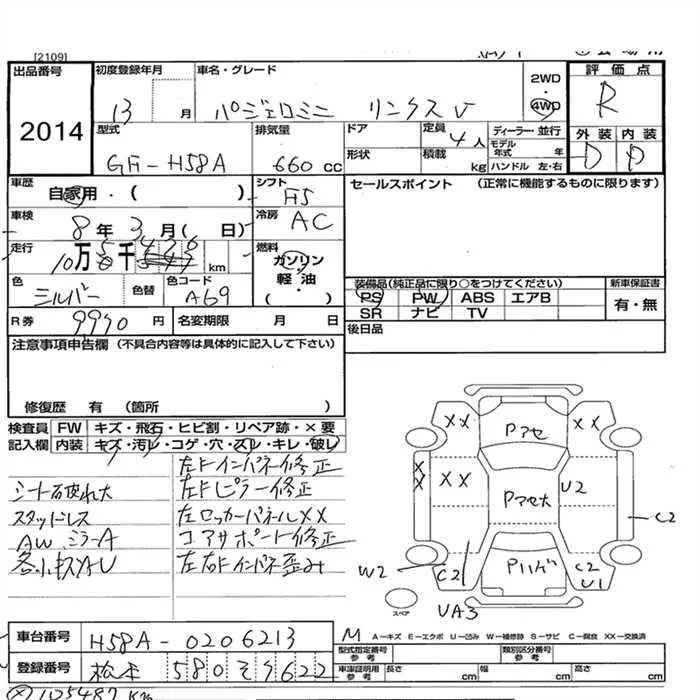 [2109]
出品番号
2014
初度登録年月
13 月
車名・グレード
パジェロミニ リンクスV
2WD
・
4WD
評価点
R
外装 内装
D D
型式
GF-H58A
排気量
660 cc
ドア
形状
定員
4人
積載
kg
ディーラー・並行
モデル年式 年
ハンドル 左・右
車歴
自家用・( )
シフト
車検
8年3月( 日)
冷房
AC
走行
10万 千 km
燃料
ガソリン
軽油
・( )
色
シルバー
色替
色コード
A69
R券
9990 円
名変期限 月 日
セールスポイント (正常に機能するものに限ります)
装備品(純正品に限り○をつけてください)
PS PW ABS エアB
SR ナビ TV
新車保証書
有・無
後日品
注意事項申告欄(不具合内容等は具体的に記入して下さい)
修復歴 有 (箇所 )
検査員 FW キズ・飛石・ヒビ割・リペア跡・×要
記入欄 内装 キズ・汚レ・コゲ・穴・スレ・キレ・破レ
左Fインパネ修正
シート破れ大
左Fピラー修正
スタッドレス
左ロッカーパネルXX
AWミラーA
コアサポート修正
左右Fインパネ歪み
XX
XX
Pアセ
XX
XX
Pアセ大
U2
C2
W2
C2
Pハゲ
C2
U1
スペア
UA3
M
A－キズ E－エクボ U－凹み W－補修跡 S－サビ C－腐食 XX－交換済
車台番号
H58A-0206213
登録番号
松本 580 そ 7622
型式指定番号
参考
類別区分番号
参考
車庫証明用
参考
長さ cm
幅 cm
高さ cm
105487Km